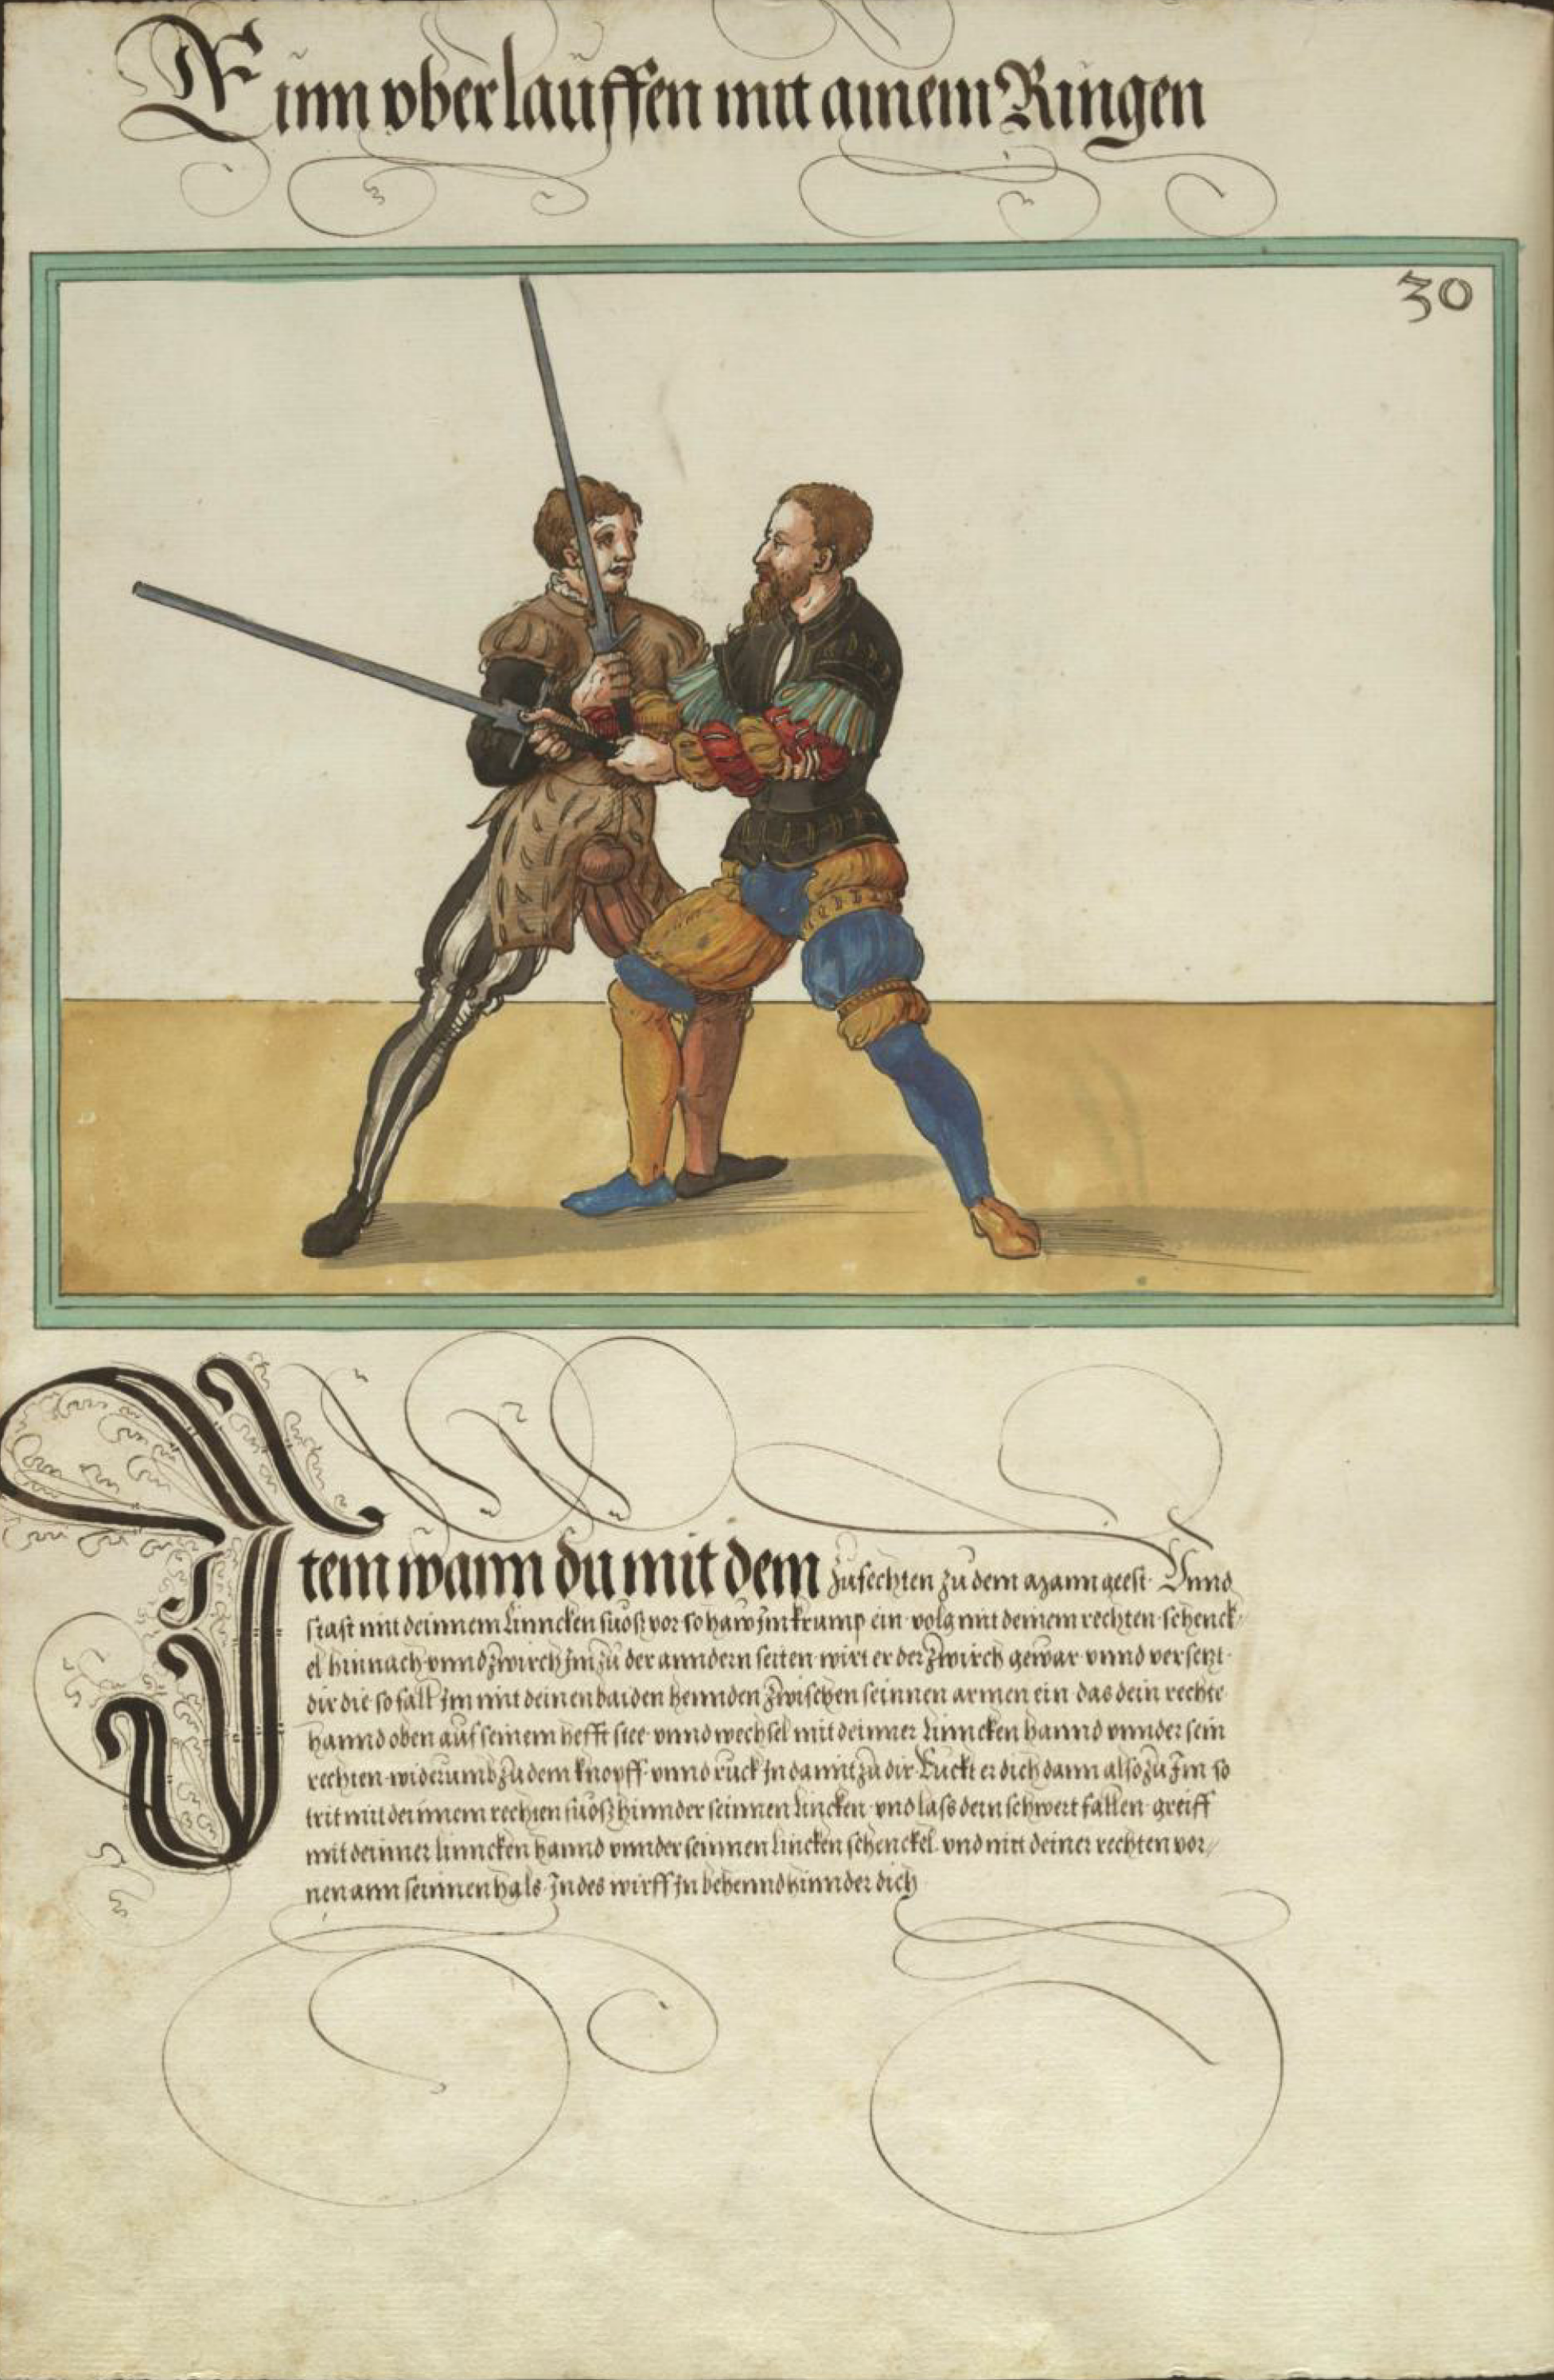 Einn vberlauffen mit ainem Ringen
30
Item wann du mit dem zufechten zu dem mann geest Vnnd
stast mit deinnem Linncken fuosz vor so haw Im krump ein volg mit deinem rechten schenck-
el hinnach vnnd zwirch Im zu der anndern seiten wirt er der zwirch gewar vnnd versetzt
dir die so fall Im mit deinen baiden hennden zwischen seinnen armen ein das dein rechte
hannd oben auf seinem hefft stee vnnd wechsel mit deinner linncken hannd vnnder sein
rechten widerumb zu dem knopff vnnd ruck In damit zu dir Ruckt er dich dann also zu Im so
trit mit deinnem rechten fuosz hinnder seinnen lincken vnd lass dein schwert fallen greiff
mit deinner linncken hannd vnnder seinnen lincken schenckel vnd mit deiner rechten vor//
nen ann seinnen hals Indes wirff In behennd hinnder dich